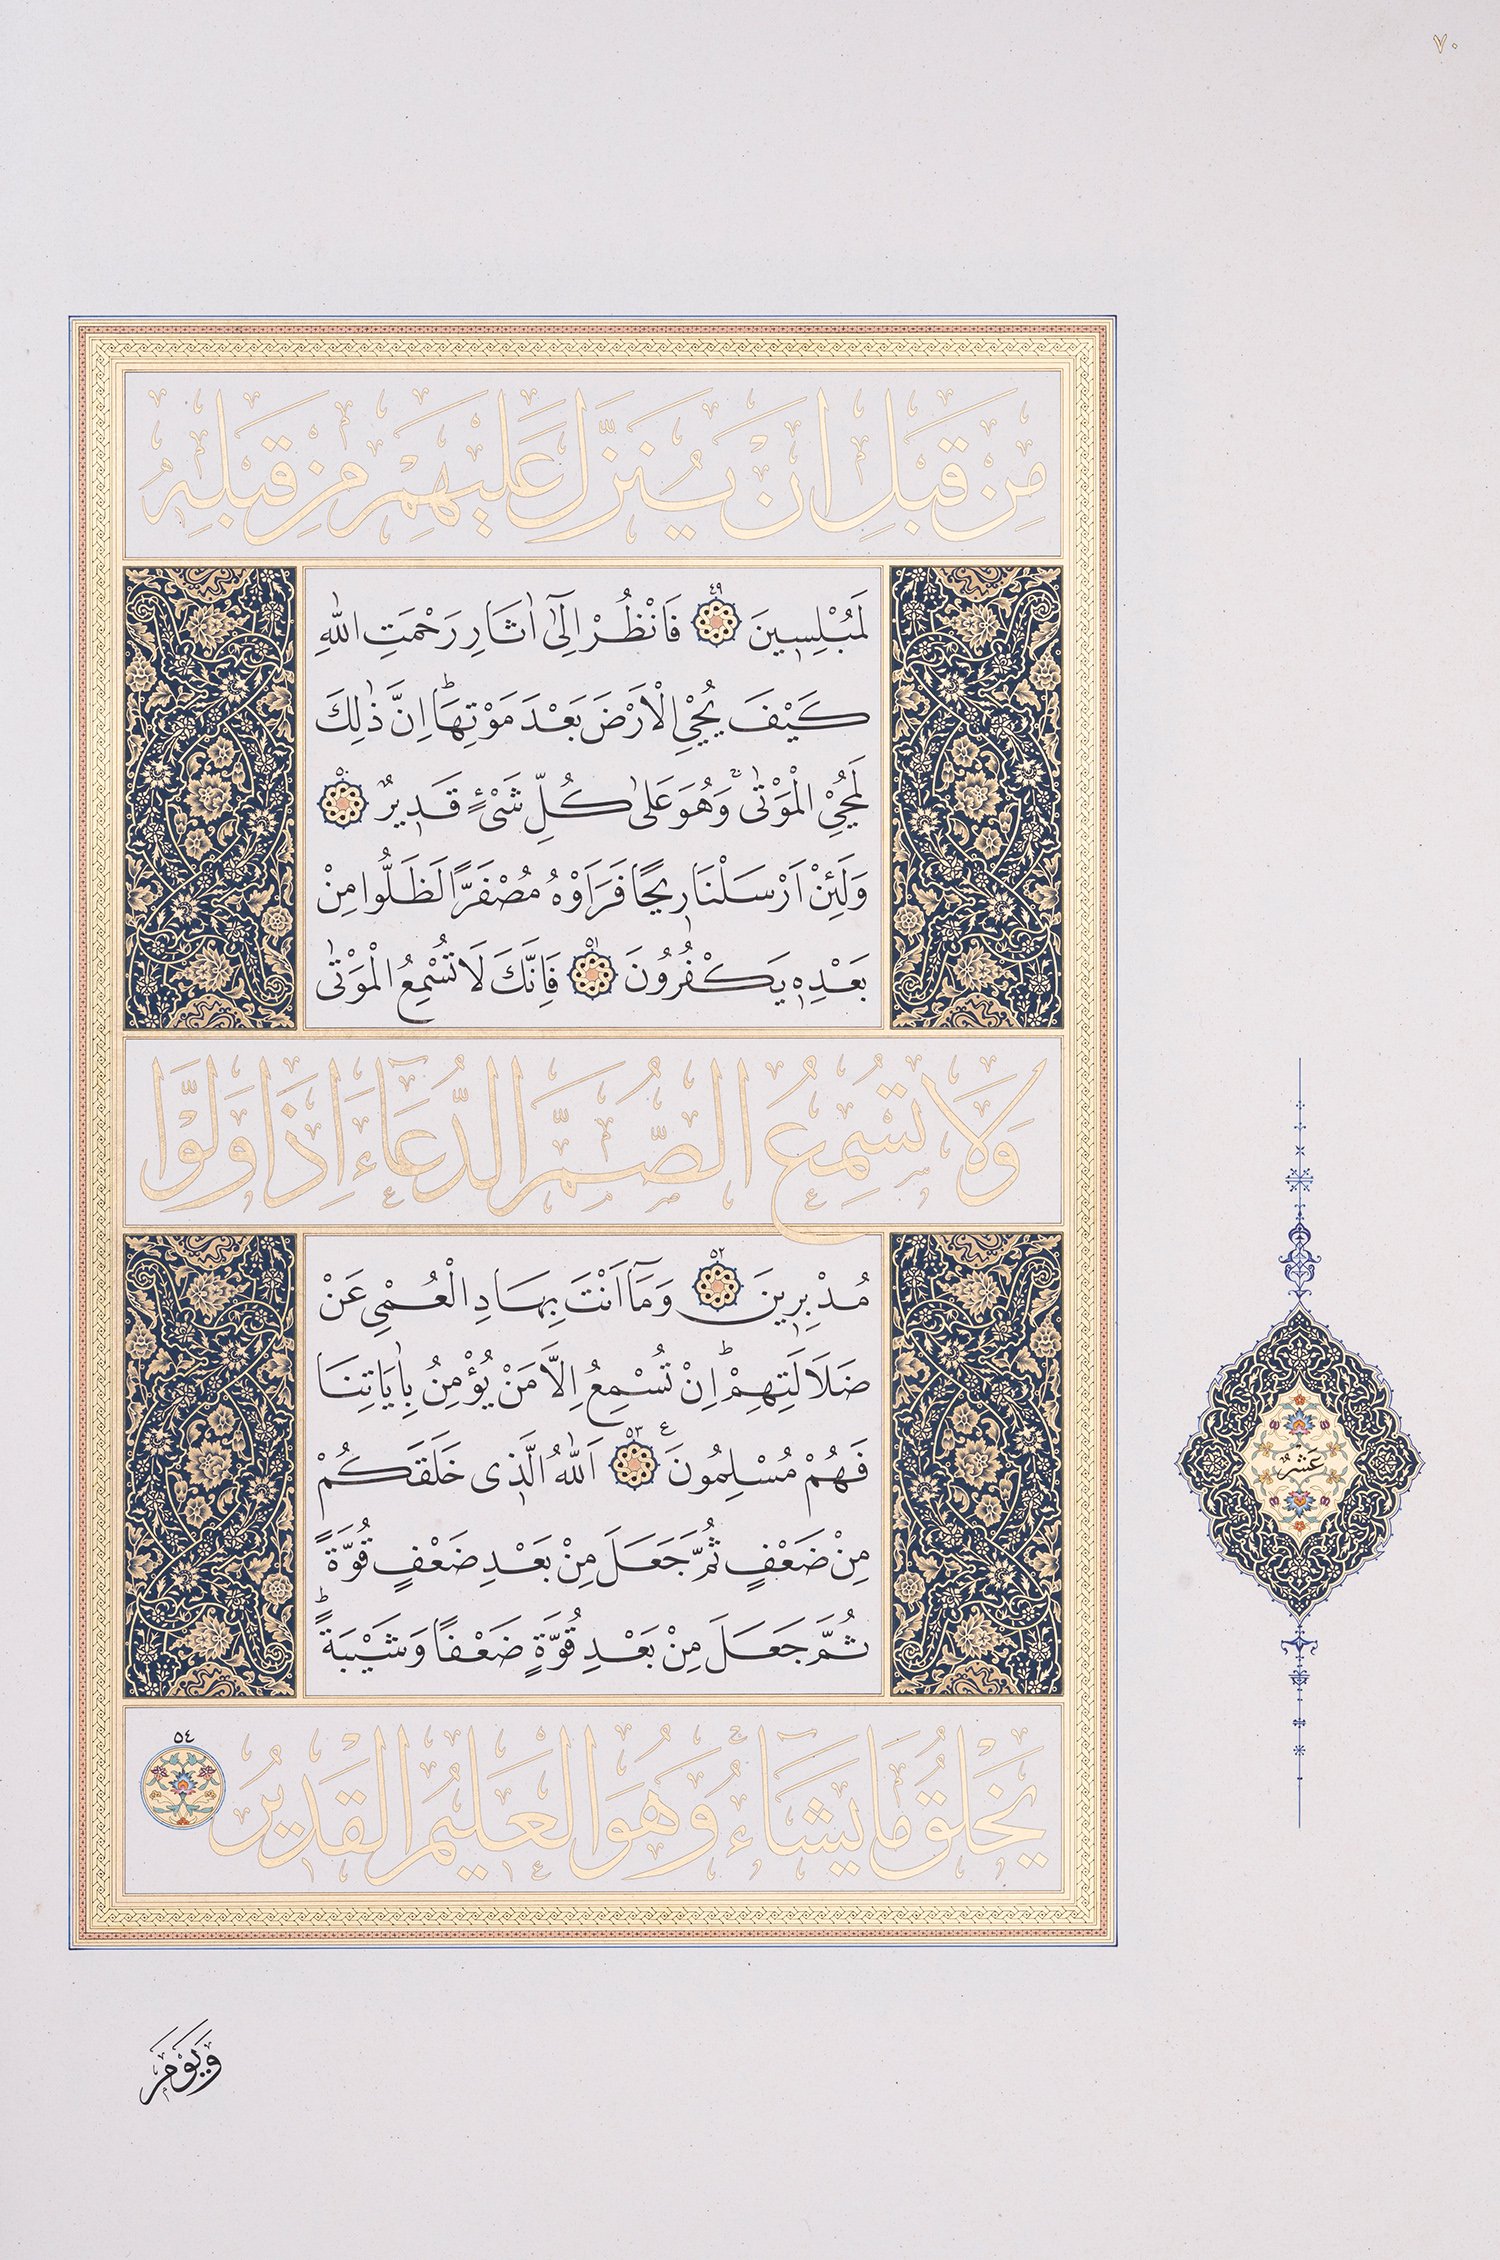 ٧٠
مِنْ قَبْلِ اَنْ يُنَزَّلَ عَلَيْهِمْ مِنْ قَبْلِه۪
لَمُبْلِس۪ينَ ٤٩ فَانْظُرْ اِلٰٓى اٰثَارِ رَحْمَتِ اللّٰهِ
كَيْفَ يُحْيِي الْاَرْضَ بَعْدَ مَوْتِهَاۜ اِنَّ ذٰلِكَ
لَمُحْيِي الْمَوْتٰىۚ وَهُوَ عَلٰى كُلِّ شَيْءٍ قَد۪يرٌ ٥٠
وَلَئِنْ اَرْسَلْنَا ر۪يحًا فَرَاَوْهُ مُصْفَرًّا لَظَلُّوا مِنْ
بَعْدِه۪ يَكْفُرُونَ ٥١ فَاِنَّكَ لَا تُسْمِعُ الْمَوْتٰى
وَلَا تُسْمِعُ الصُّمَّ الدُّعَٓاءَ اِذَا وَلَّوْا
مُدْبِر۪ينَ ٥٢ وَمَٓا اَنْتَ بِهَادِ الْعُمْيِ عَنْ
ضَلَالَتِهِمْۜ اِنْ تُسْمِعُ اِلَّا مَنْ يُؤْمِنُ بِاٰيَاتِنَا
فَهُمْ مُسْلِمُونَ ع ٥٣ اَللّٰهُ الَّذ۪ي خَلَقَكُمْ
عَشْرٌ
مِنْ ضَعْفٍ ثُمَّ جَعَلَ مِنْ بَعْدِ ضَعْفٍ قُوَّةً
ثُمَّ جَعَلَ مِنْ بَعْدِ قُوَّةٍ ضَعْفًا وَشَيْبَةًۜ
يَخْلُقُ مَا يَشَٓاءُۚ وَهُوَ الْعَل۪يمُ الْقَد۪يرُ ٥٤
وَيَوْمَ